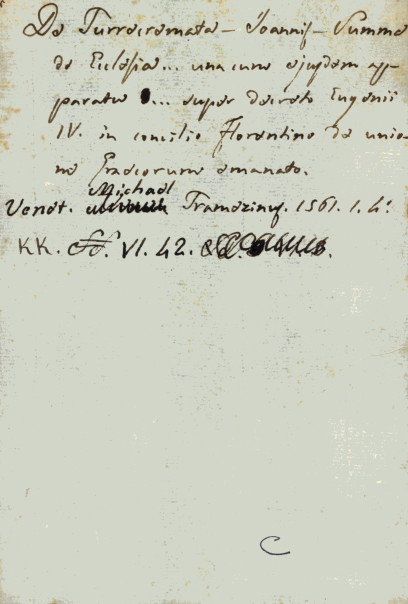 De Turrecremata – Joannis – Summa
de Ecclesia... una cum ejusdem ap-
paratu ... super decreto Eugenii
IV. in concilio Florentino de unio-
ne Graecorum emanato.
Venet. Michael Tramezinus. 1561. 1. 4°.
KK. VI. 42.
C